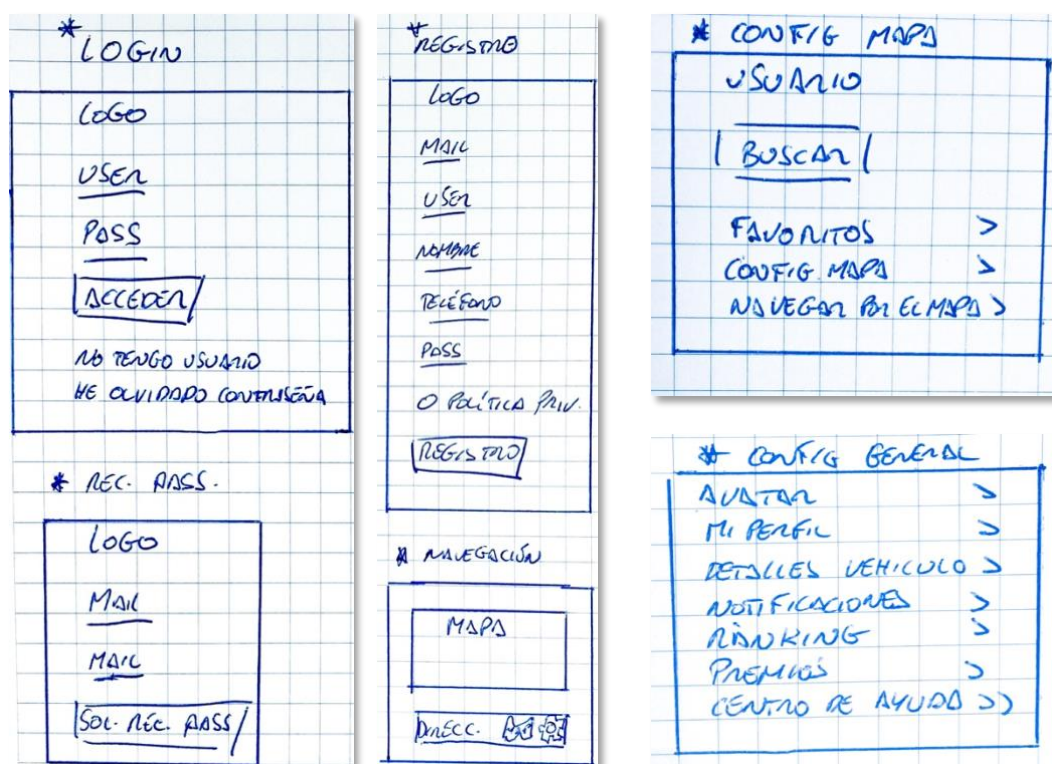 * LOGIN
LOGO
USER
PASS
ACCEDER
NO TENGO USUARIO
HE OLVIDADO CONTRASEÑA
* REC. PASS.
LOGO
MAIL
MAIL
SOL. REC. PASS
* REGISTRO
LOGO
MAIL
USER
NOMBRE
TELÉFONO
PASS
O POLÍTICA PRIV.
REGISTRO
* NAVEGACIÓN
MAPA
DIRECC.
* CONFIG MAPA
USUARIO
BUSCAR
FAVORITOS >
CONFIG. MAPA >
NAVEGAR POR EL MAPA >
* CONFIG GENERAL
AVATAR >
MI PERFIL >
DETALLES VEHICULO >
NOTIFICACIONES >
RANKING >
PREMIOS >
CENTRO DE AYUDA >